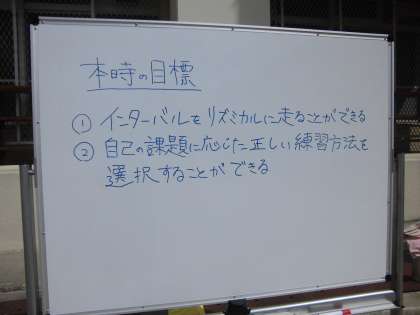 本時の目標
① インターバルをリズミカルに走ることができる
② 自己の課題に応じた正しい練習方法を
選択することができる